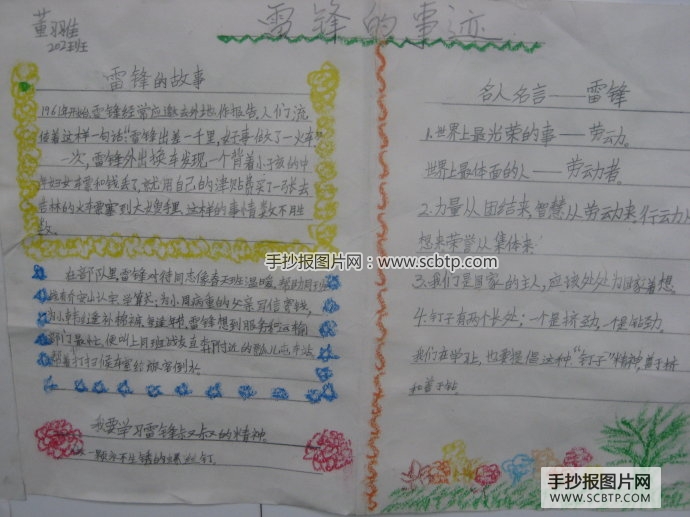 董羽雅
202班
雷锋的事迹
雷锋的故事
1961年开始,雷锋经常应邀去外地作报告,人们流
传着这样一句话:“雷锋出差一千里,好事做了一火车”
一次,雷锋外出换车发现一个背着小孩的中
年妇女车票和钱丢了,就用自己的津贴费买了一张去
吉林的火车票塞到大嫂手里,这样的事情数不胜
数。
在部队里雷锋对待同志像春天班温暖,帮助同
战友乔安山认字,学算术;为小周病重的父亲写信寄钱,
为小韩缝补棉裤,每逢年节,雷锋想到服务和运输
部门最忙,便叫上同班战友直奔附近的瓢儿屯车站
帮着打扫候车室给旅客倒水。
我要学习雷锋叔叔的精神
一颗永不生锈的螺丝钉
名人名言——雷锋
1.世界上最光荣的事——劳动。
世界上最体面的人——劳动者。
2.力量从团结来,智慧从劳动来,行动从思
想来荣誉从集体来.
3.我们是国家的主人,应该处处为国家着想
4.钉子有两个长处:一个是挤劲,一个是钻劲。
我们在学习上,也要提倡这种“钉子”精神,善于挤
和善于钻
手抄报图片网:www.scbtp.com
手抄报图片网
WWW.SCBTP.COM